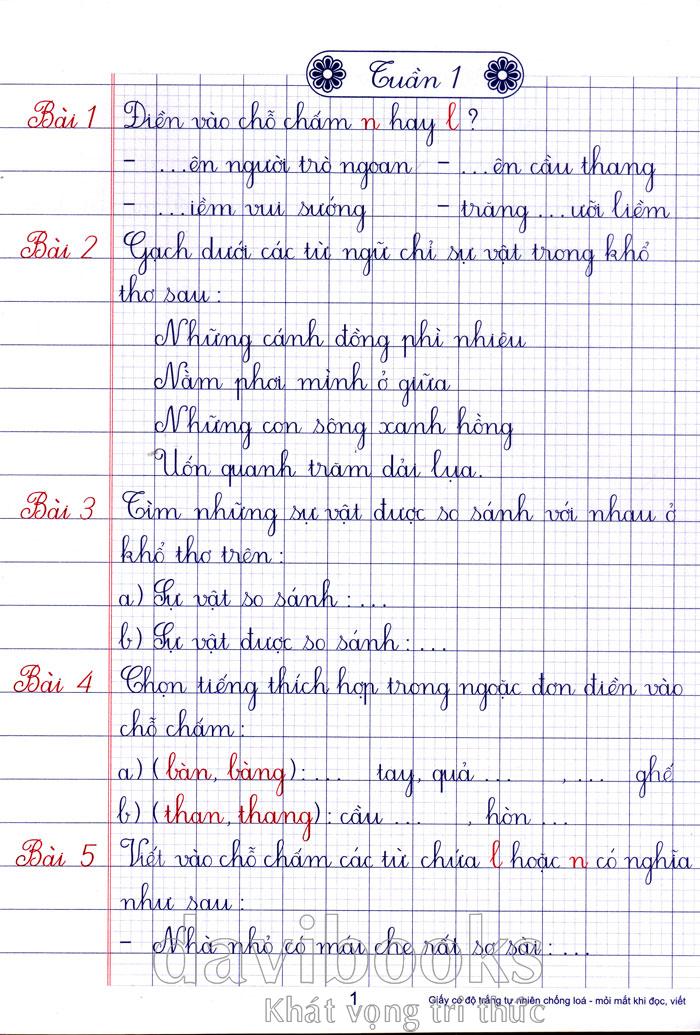 Tuần 1
Bài 1 Điền vào chỗ chấm n hay l ?
- ...ên người trò ngoan - ...ên cầu thang
- ...iềm vui sướng - trăng ...ưỡi liềm
Bài 2 Gạch dưới các từ ngữ chỉ sự vật trong khổ
thơ sau :
Những cánh đồng phì nhiêu
Nằm phơi mình ở giữa
Những con sông xanh hồng
Uốn quanh trăm dải lụa.
Bài 3 Tìm những sự vật được so sánh với nhau ở
khổ thơ trên :
a) Sự vật so sánh : ...
b) Sự vật được so sánh : ...
Bài 4 Chọn tiếng thích hợp trong ngoặc đơn điền vào
chỗ chấm :
a) (bàn, bàng) : ... tay, quả ... , ... ghế
b) (than, thang) : cầu ... , hòn ...
Bài 5 Viết vào chỗ chấm các từ chứa l hoặc n có nghĩa
như sau :
- Nhà nhỏ có mái che rất sơ sài : ...
davibooks
Khát vọng tri thức
1 Giấy có độ trắng tự nhiên chống loá - mỏi mắt khi đọc, viết